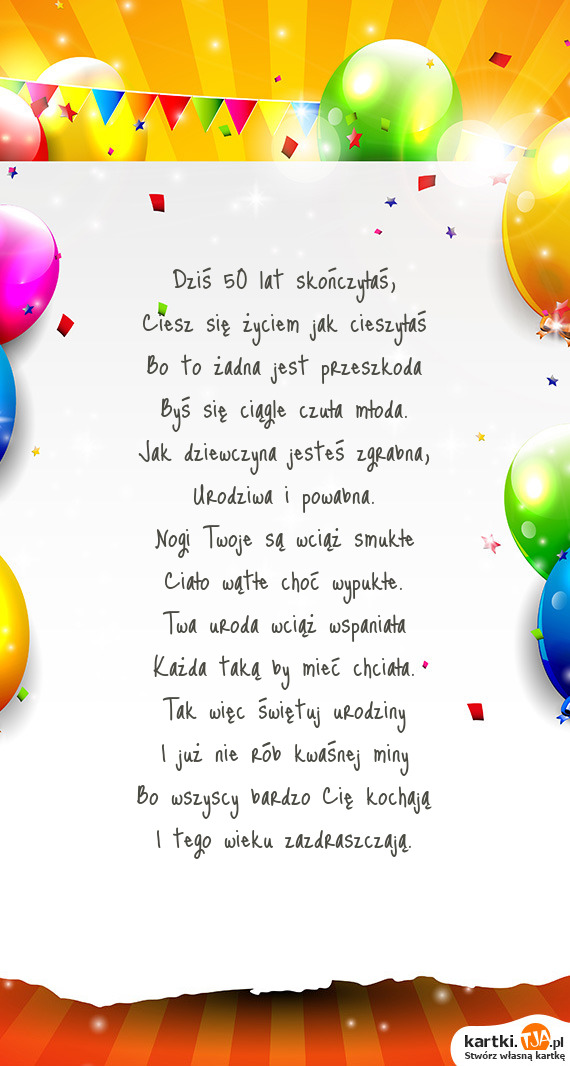 Dziś 50 lat skończyłaś,
Ciesz się życiem jak cieszyłaś
Bo to żadna jest przeszkoda
Byś się ciągle czuła młoda.
Jak dziewczyna jesteś zgrabna,
Urodziwa i powabna.
Nogi Twoje są wciąż smukłe
Ciało wątłe choć wypukłe.
Twa uroda wciąż wspaniała
Każda taką by mieć chciała.
Tak więc świętuj urodziny
I już nie rób kwaśnej miny
Bo wszyscy bardzo Cię kochają
I tego wieku zazdraszczają.
kartki.TJA.pl
Stwórz własną kartkę